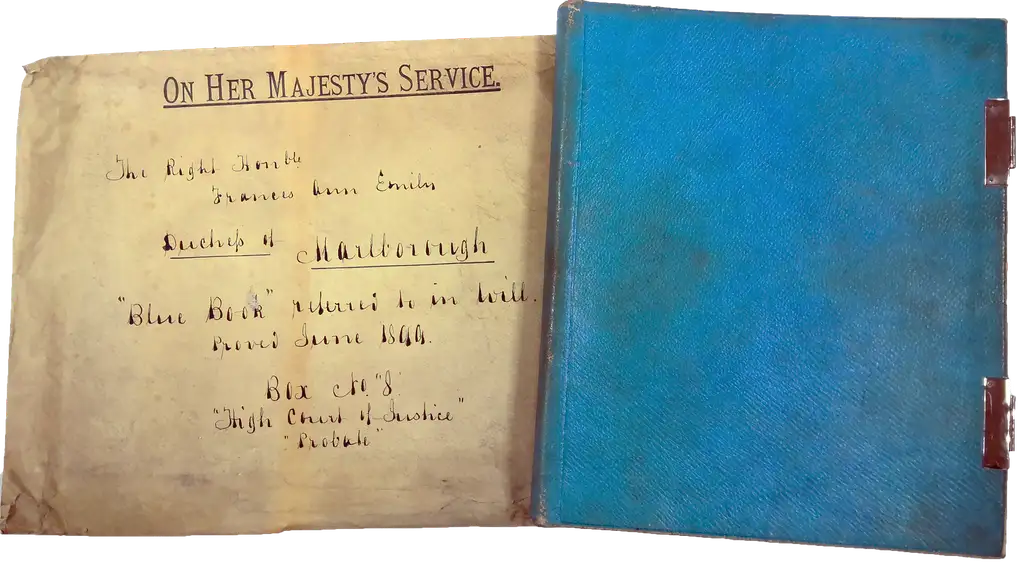 ON HER MAJESTY'S SERVICE.
The Right Honble
Frances Ann Emily
Duchess of Marlborough
"Blue Book" referred to in Will.
Proved June 1899.
Box No. "8
"High Court of Justice"
"Probate"